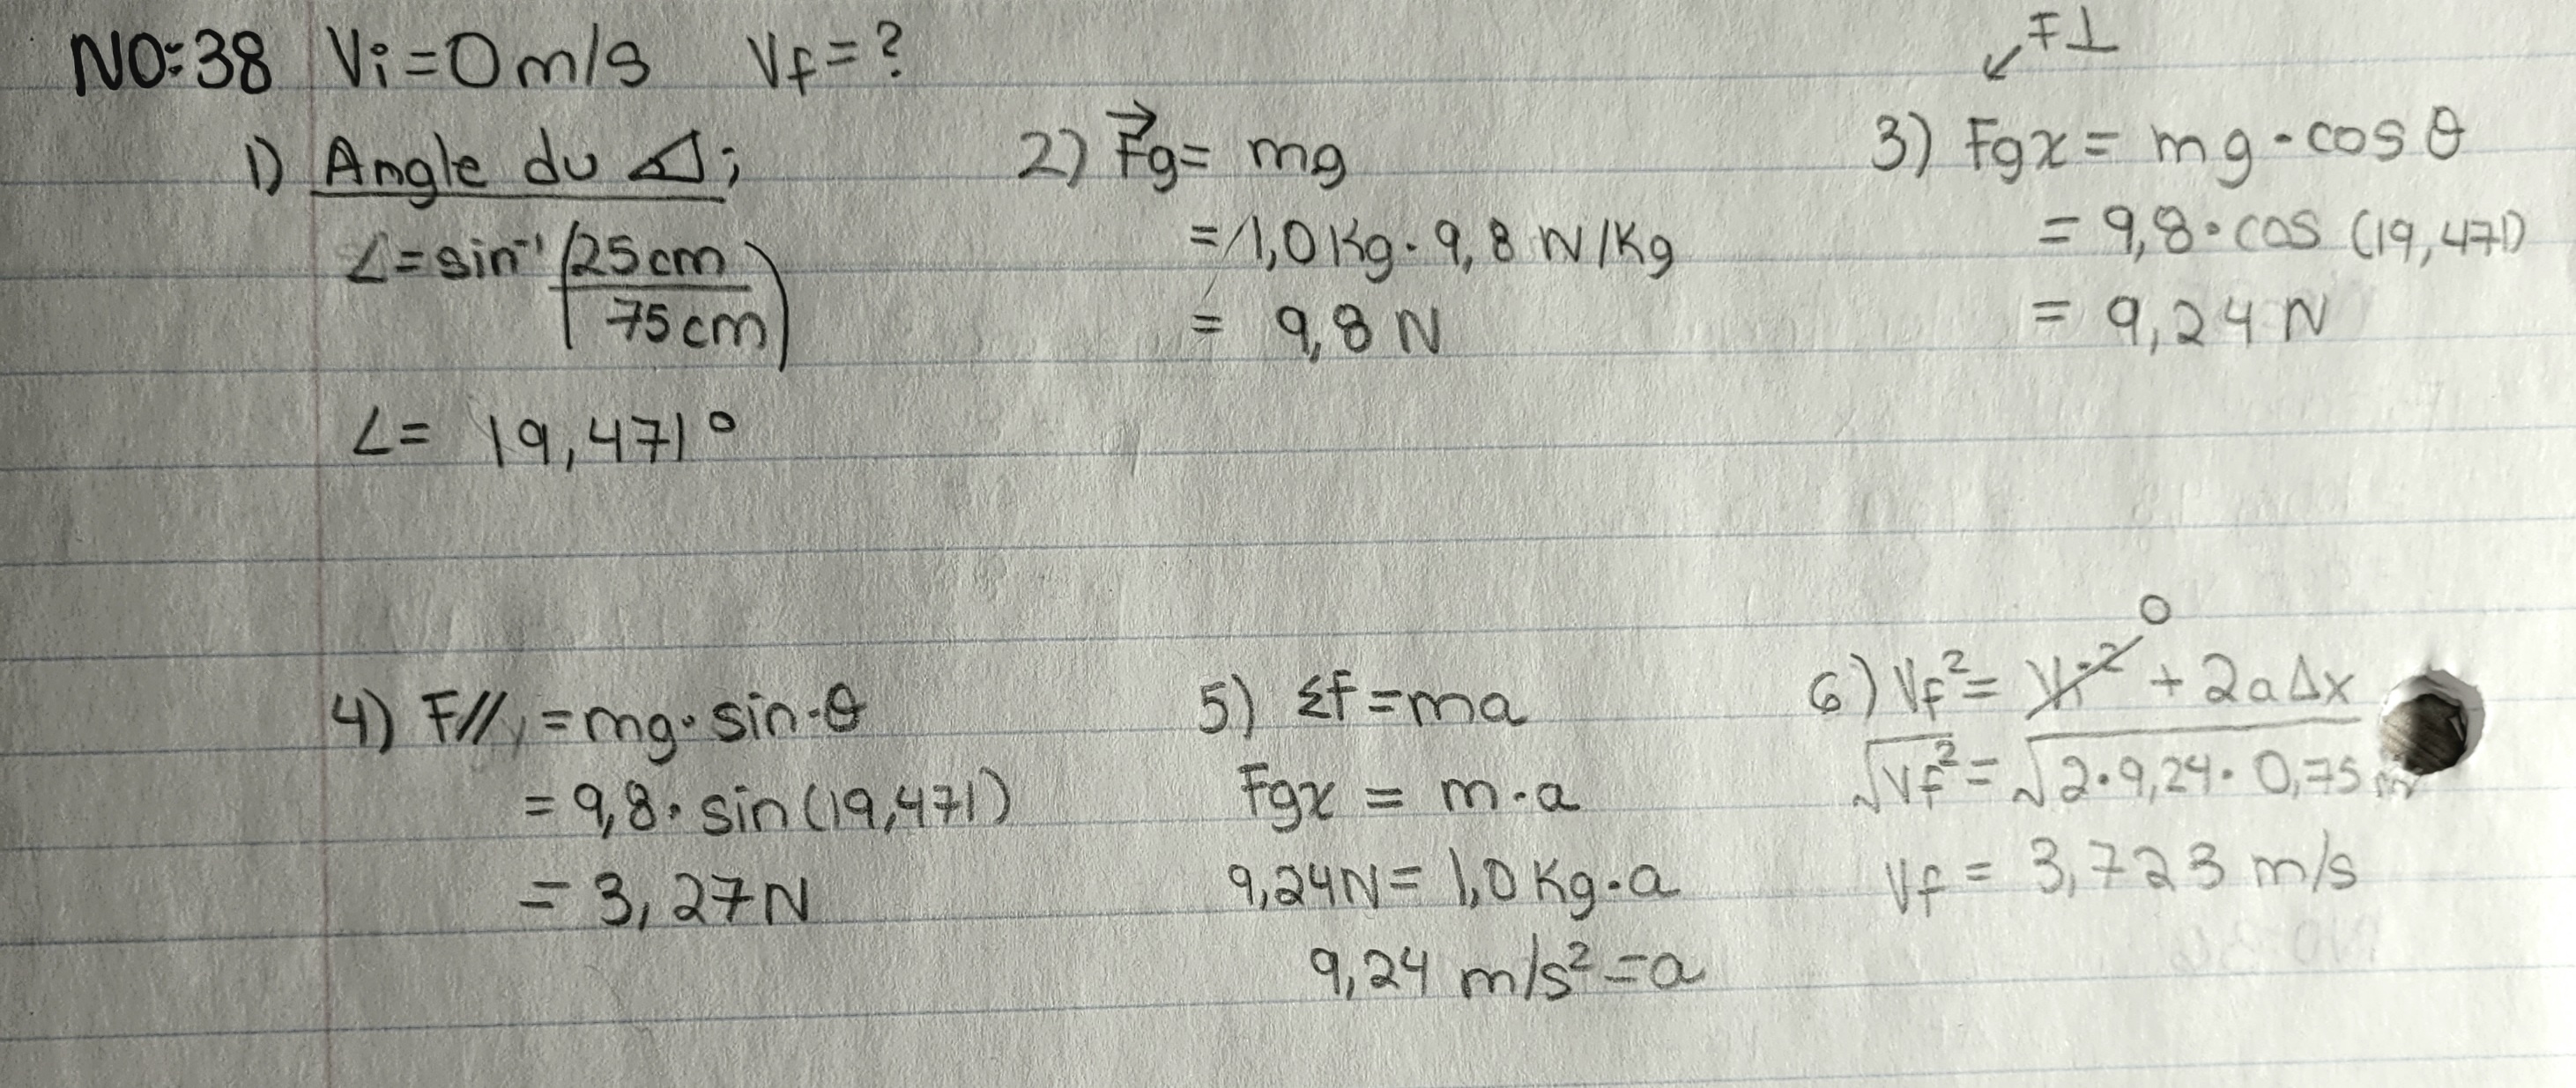 NO:38 Vi=0m/s Vf=?
1) Angle du ⊿;
∠=sin⁻¹(25cm/75cm)
∠= 19,471°
2) F⃗g= mg
=1,0Kg·9,8 N/Kg
= 9,8 N
↙F⊥
3) Fgx= mg·cosθ
= 9,8·cos (19,471)
= 9,24 N
4) F// =mg·sin·θ
=9,8·sin(19,471)
= 3,27N
5) Σf=ma
Fgx = m·a
9,24N= 1,0Kg·a
9,24 m/s²=a
0
6) Vf²= Vi² + 2aΔx
√Vf²= √2·9,24·0,75m
Vf = 3,723 m/s